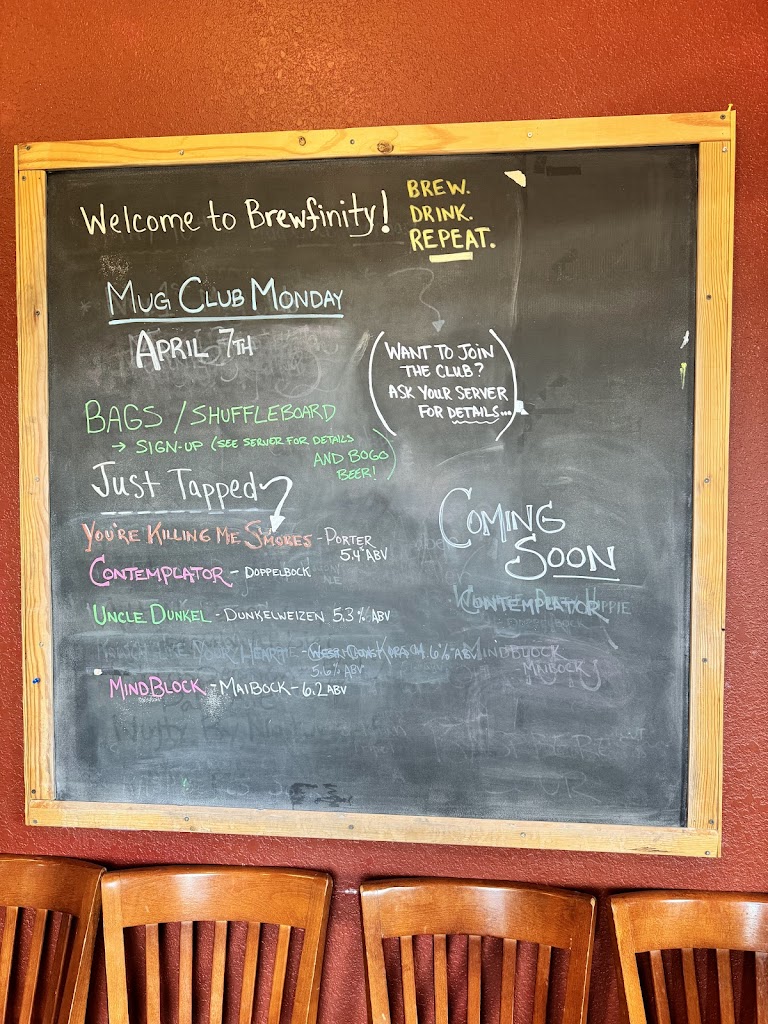 Welcome to Brewfinity!
BREW.
DRINK.
REPEAT.
MUG CLUB MONDAY
APRIL 7TH
(WANT TO JOIN
THE CLUB?
ASK YOUR SERVER
FOR DETAILS...)
BAGS / SHUFFLEBOARD
→ SIGN-UP (SEE SERVER FOR DETAILS
AND BOGO
BEER!)
Just Tapped
YOU'RE KILLING ME SMOKES - PORTER
5.4% ABV
CONTEMPLATOR - DOPPELBOCK
UNCLE DUNKEL - DUNKELWEIZEN 5.3% ABV
5.6% ABV
MINDBLOCK - MAIBOCK - 6.2 ABV
COMING
SOON
CONTEMPLATOR
MINDBLOCK
MAIBOCK